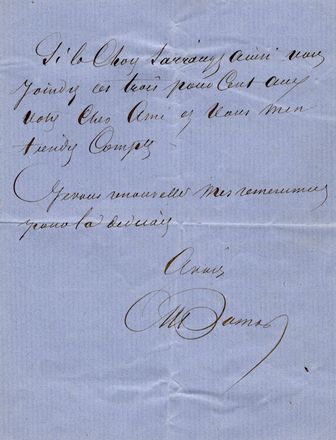 Si la Chose s'arrange ainsi vous
Joindrez ces trois pour Cent aux
votres Cher Ami et vous m'en
tiendrez Compte
Je vous renouvelle mes remerciements
pour la
Amitiés